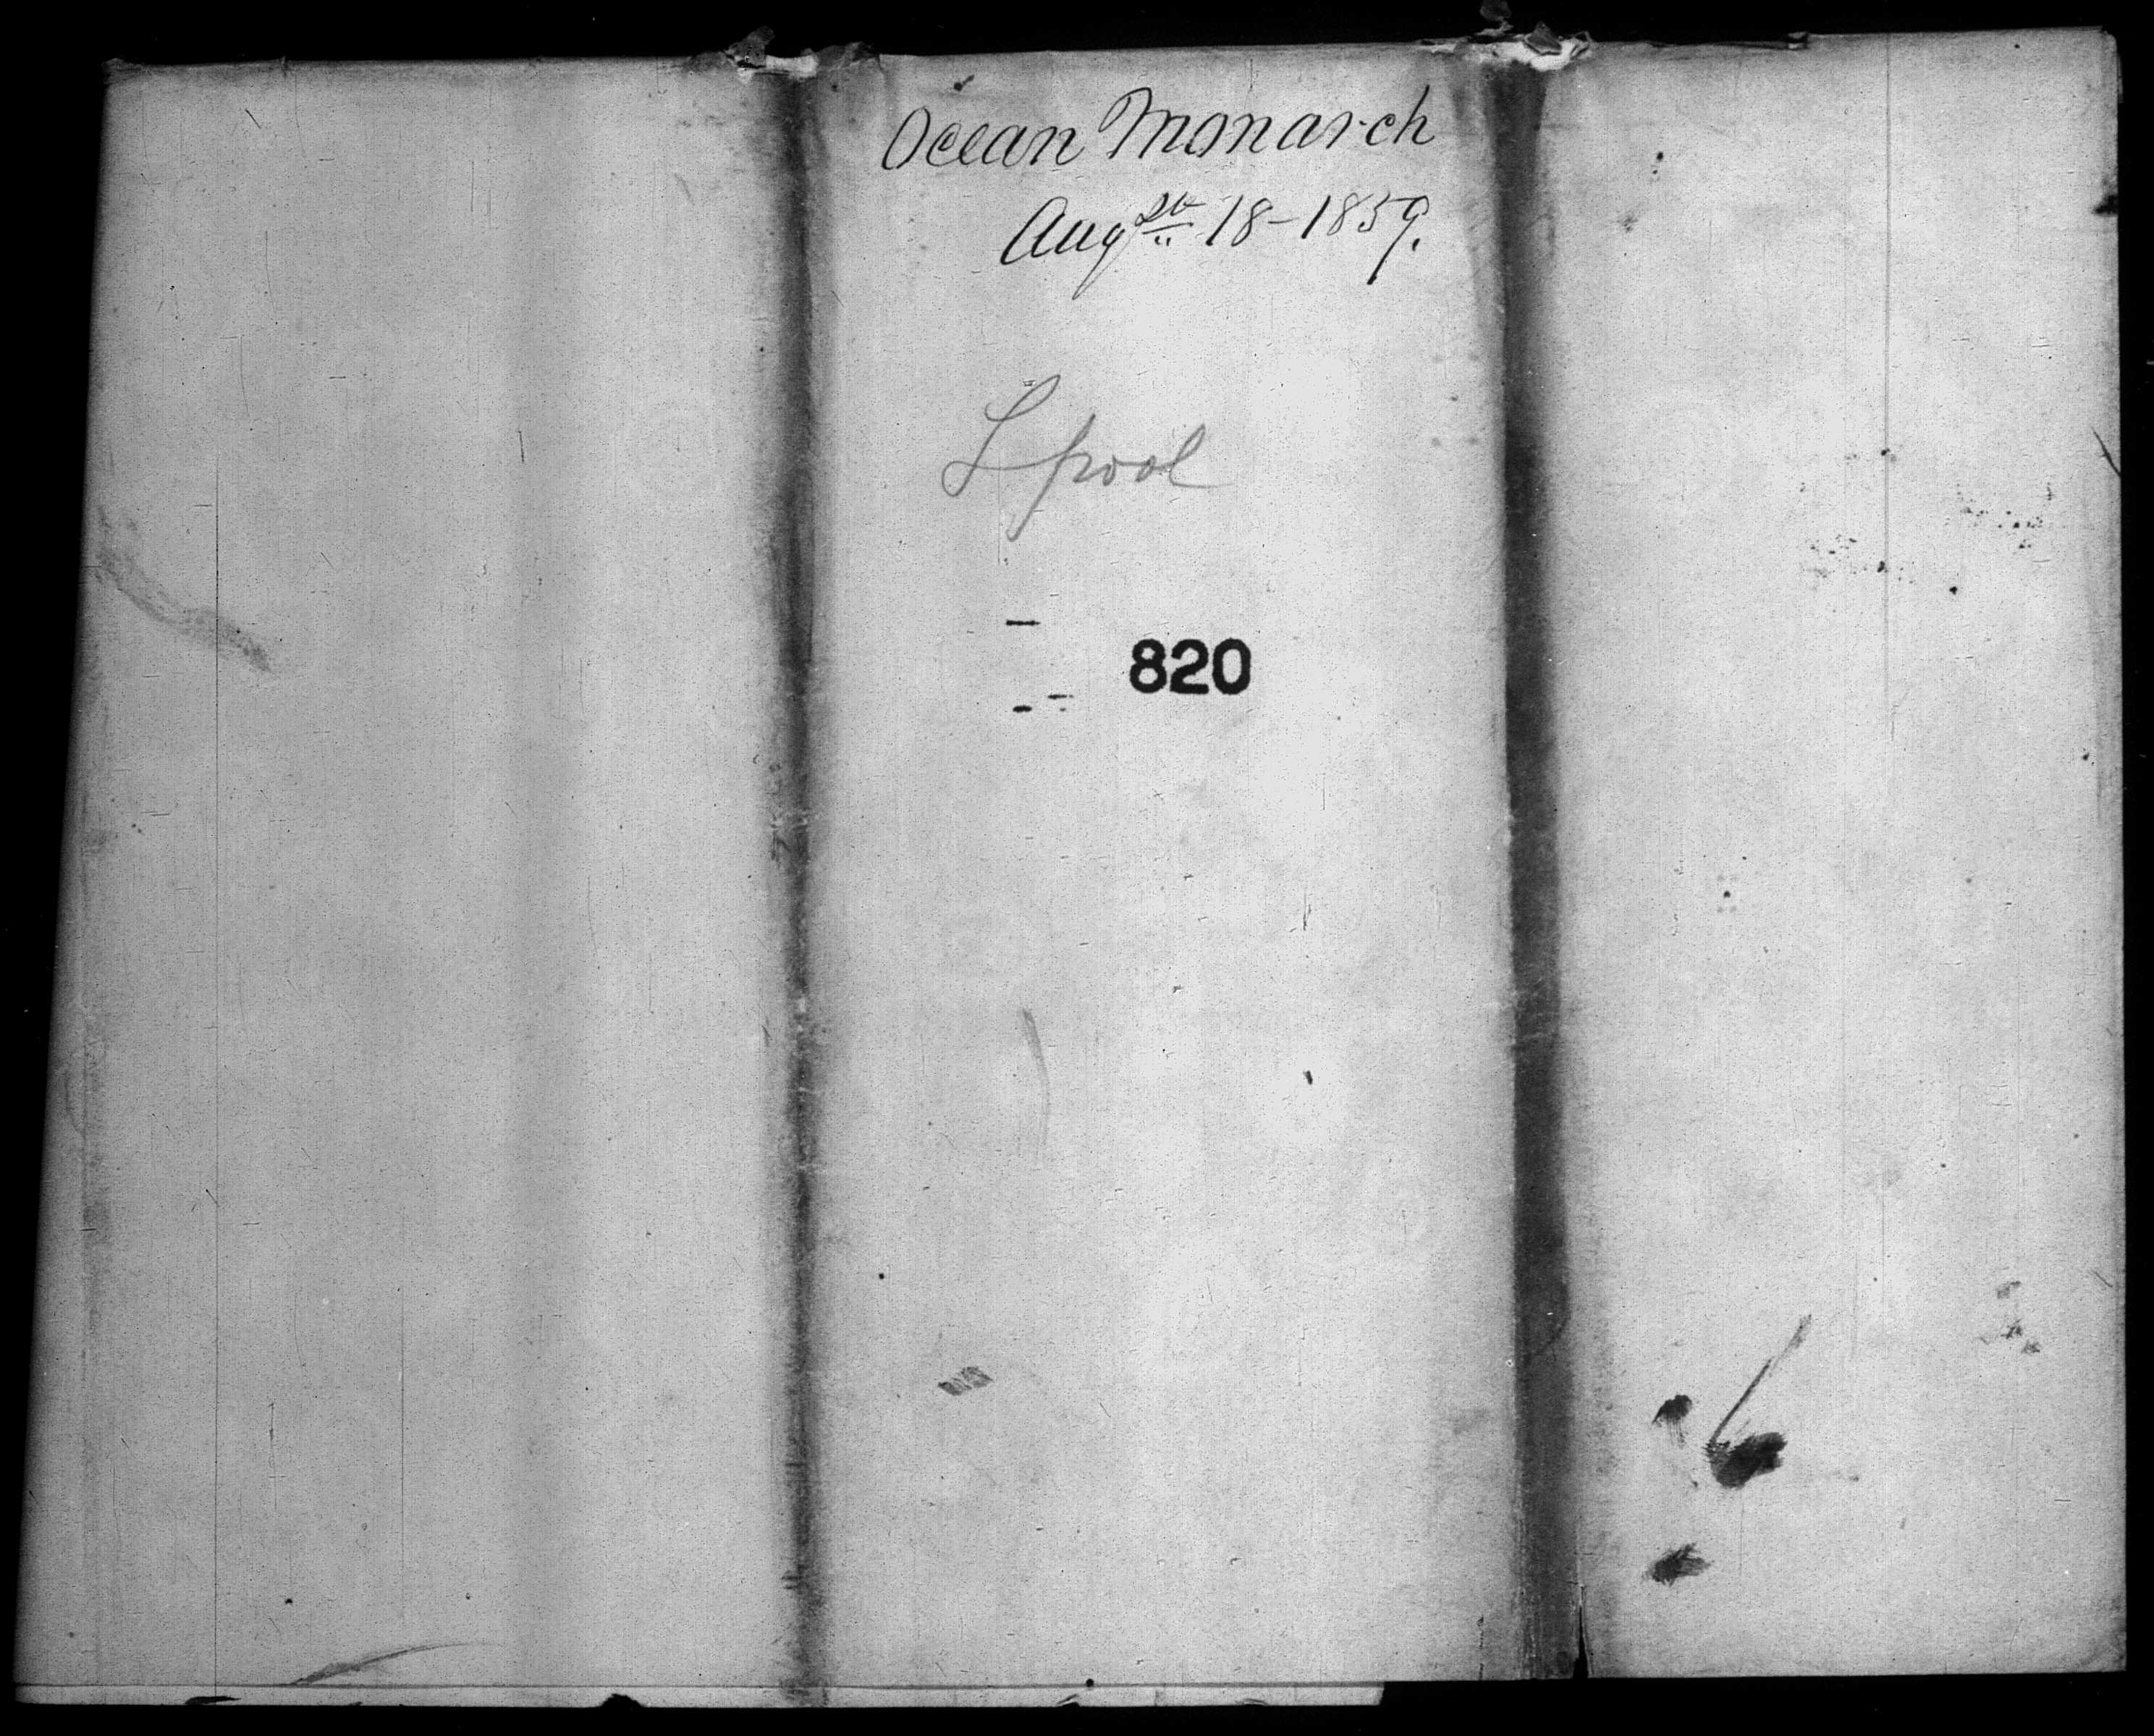 Ocean Monarch
Augst 18-1859.
Lpool
820